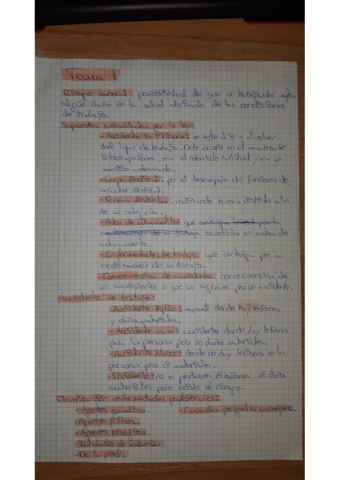 Tema 1
Riesgo laboral: posibilidad de que un trabajador sufra
algún daño en la salud derivado de las condiciones
de trabajo.
Supuestos considerados por la ley:
- Accidente in itinere: se sufre al ir o al volver
del lugar de trabajo. Debe ocurrir en el
sin interrupciones, con el recorrido habitual y en un
adecuado.
- Cargo sindical: por el desempeño de funciones de
carácter sindical.
- Tareas distintas: realizando tareas distintas a las
de su categoría.
- Actos de salvamento:
ocurridos en actos de
salvamento.
- Enfermedades de trabajo: que contraiga por la
realización de su trabajo.
- consecuencia de
un accidente o que se agrave por un accidente.
Accidente de trabajo:
- Accidente típico: aquel donde hay lesiones
y daños materiales.
- Accidente accidente donde hay lesiones
para la persona pero no daños materiales.
- Accidente blanco: donde no hay lesiones en la
persona pero sí materiales.
- Incidente: no se producen ni lesiones ni daños
materiales pero existe el riesgo.
enfermedades profesionales:
- Agentes químicos
- Agentes físicos.
- Agentes biológicos.
- Inhalación de sustancias.
- De la piel.
- Causadas por agentes cancerígenos.